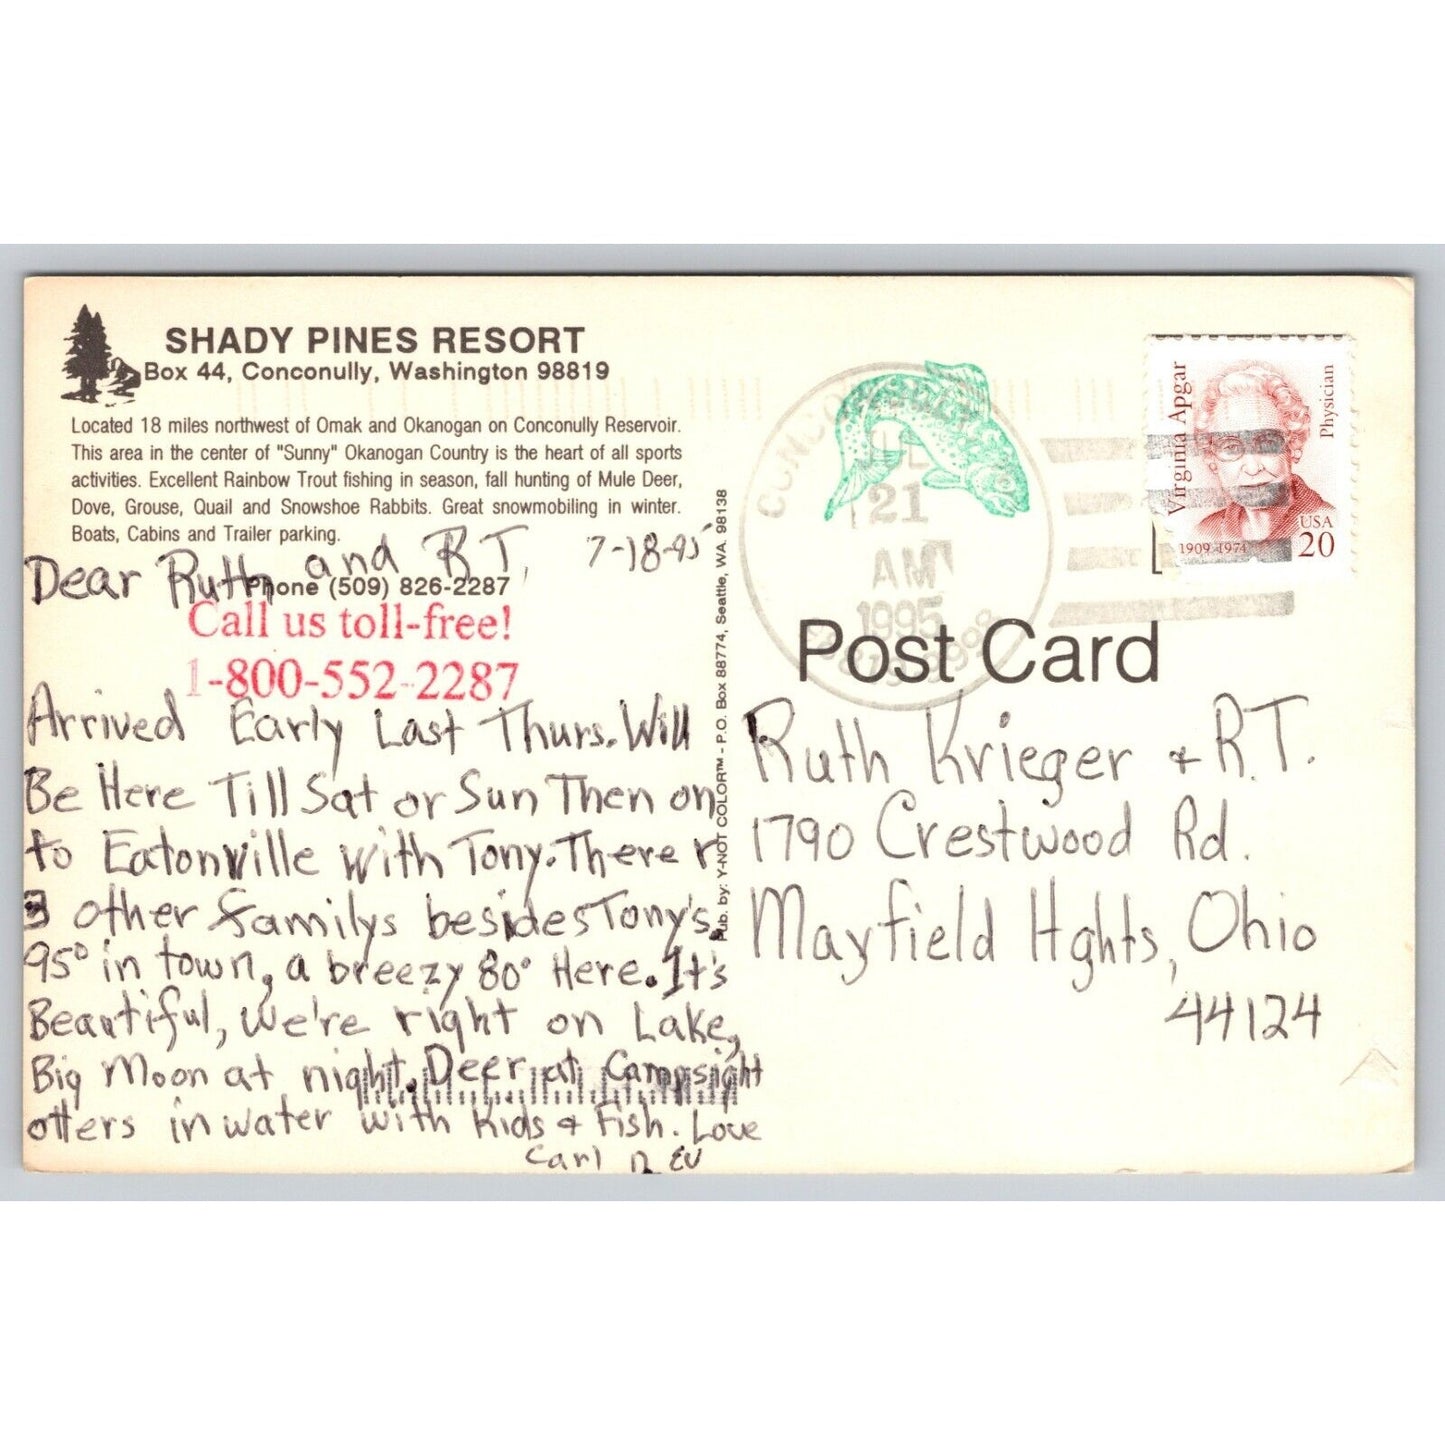 SHADY PINES RESORT
Box 44, Conconully, Washington 98819
Located 18 miles northwest of Omak and Okanogan on Conconully Reservoir.
This area in the center of "Sunny" Okanogan County is the heart of all sports
activities. Excellent Rainbow Trout fishing in season, fall hunting of Mule Deer,
Dove, Grouse, Quail and Snowshoe Rabbits. Great snowmobiling in winter.
Boats, Cabins and Trailer parking.
7-18-95
Dear Ruth and R.T,
Phone (509) 826-2287
Call us toll-free!
1-800-552-2287
Arrived Early Last Thurs. Will
Be Here Till Sat or Sun Then on
to Eatonville with Tony. There r
3 other familys besides Tony's.
95° in town, a breezy 80° Here. It's
Beautiful, we're right on Lake,
Big Moon at night. Deer at Campsight
otters in water with Kids & Fish. Love
Carl
Pub. by: Y-NOT COLOR™ - P.O. Box 88774, Seattle, WA. 98138
CONCONULLY
JUL
21
AM
1995
Virginia Apgar
Physician
1909-1974
USA
20
Post Card
Ruth Krieger + R.T.
1790 Crestwood Rd.
Mayfield Hghts, Ohio
44124